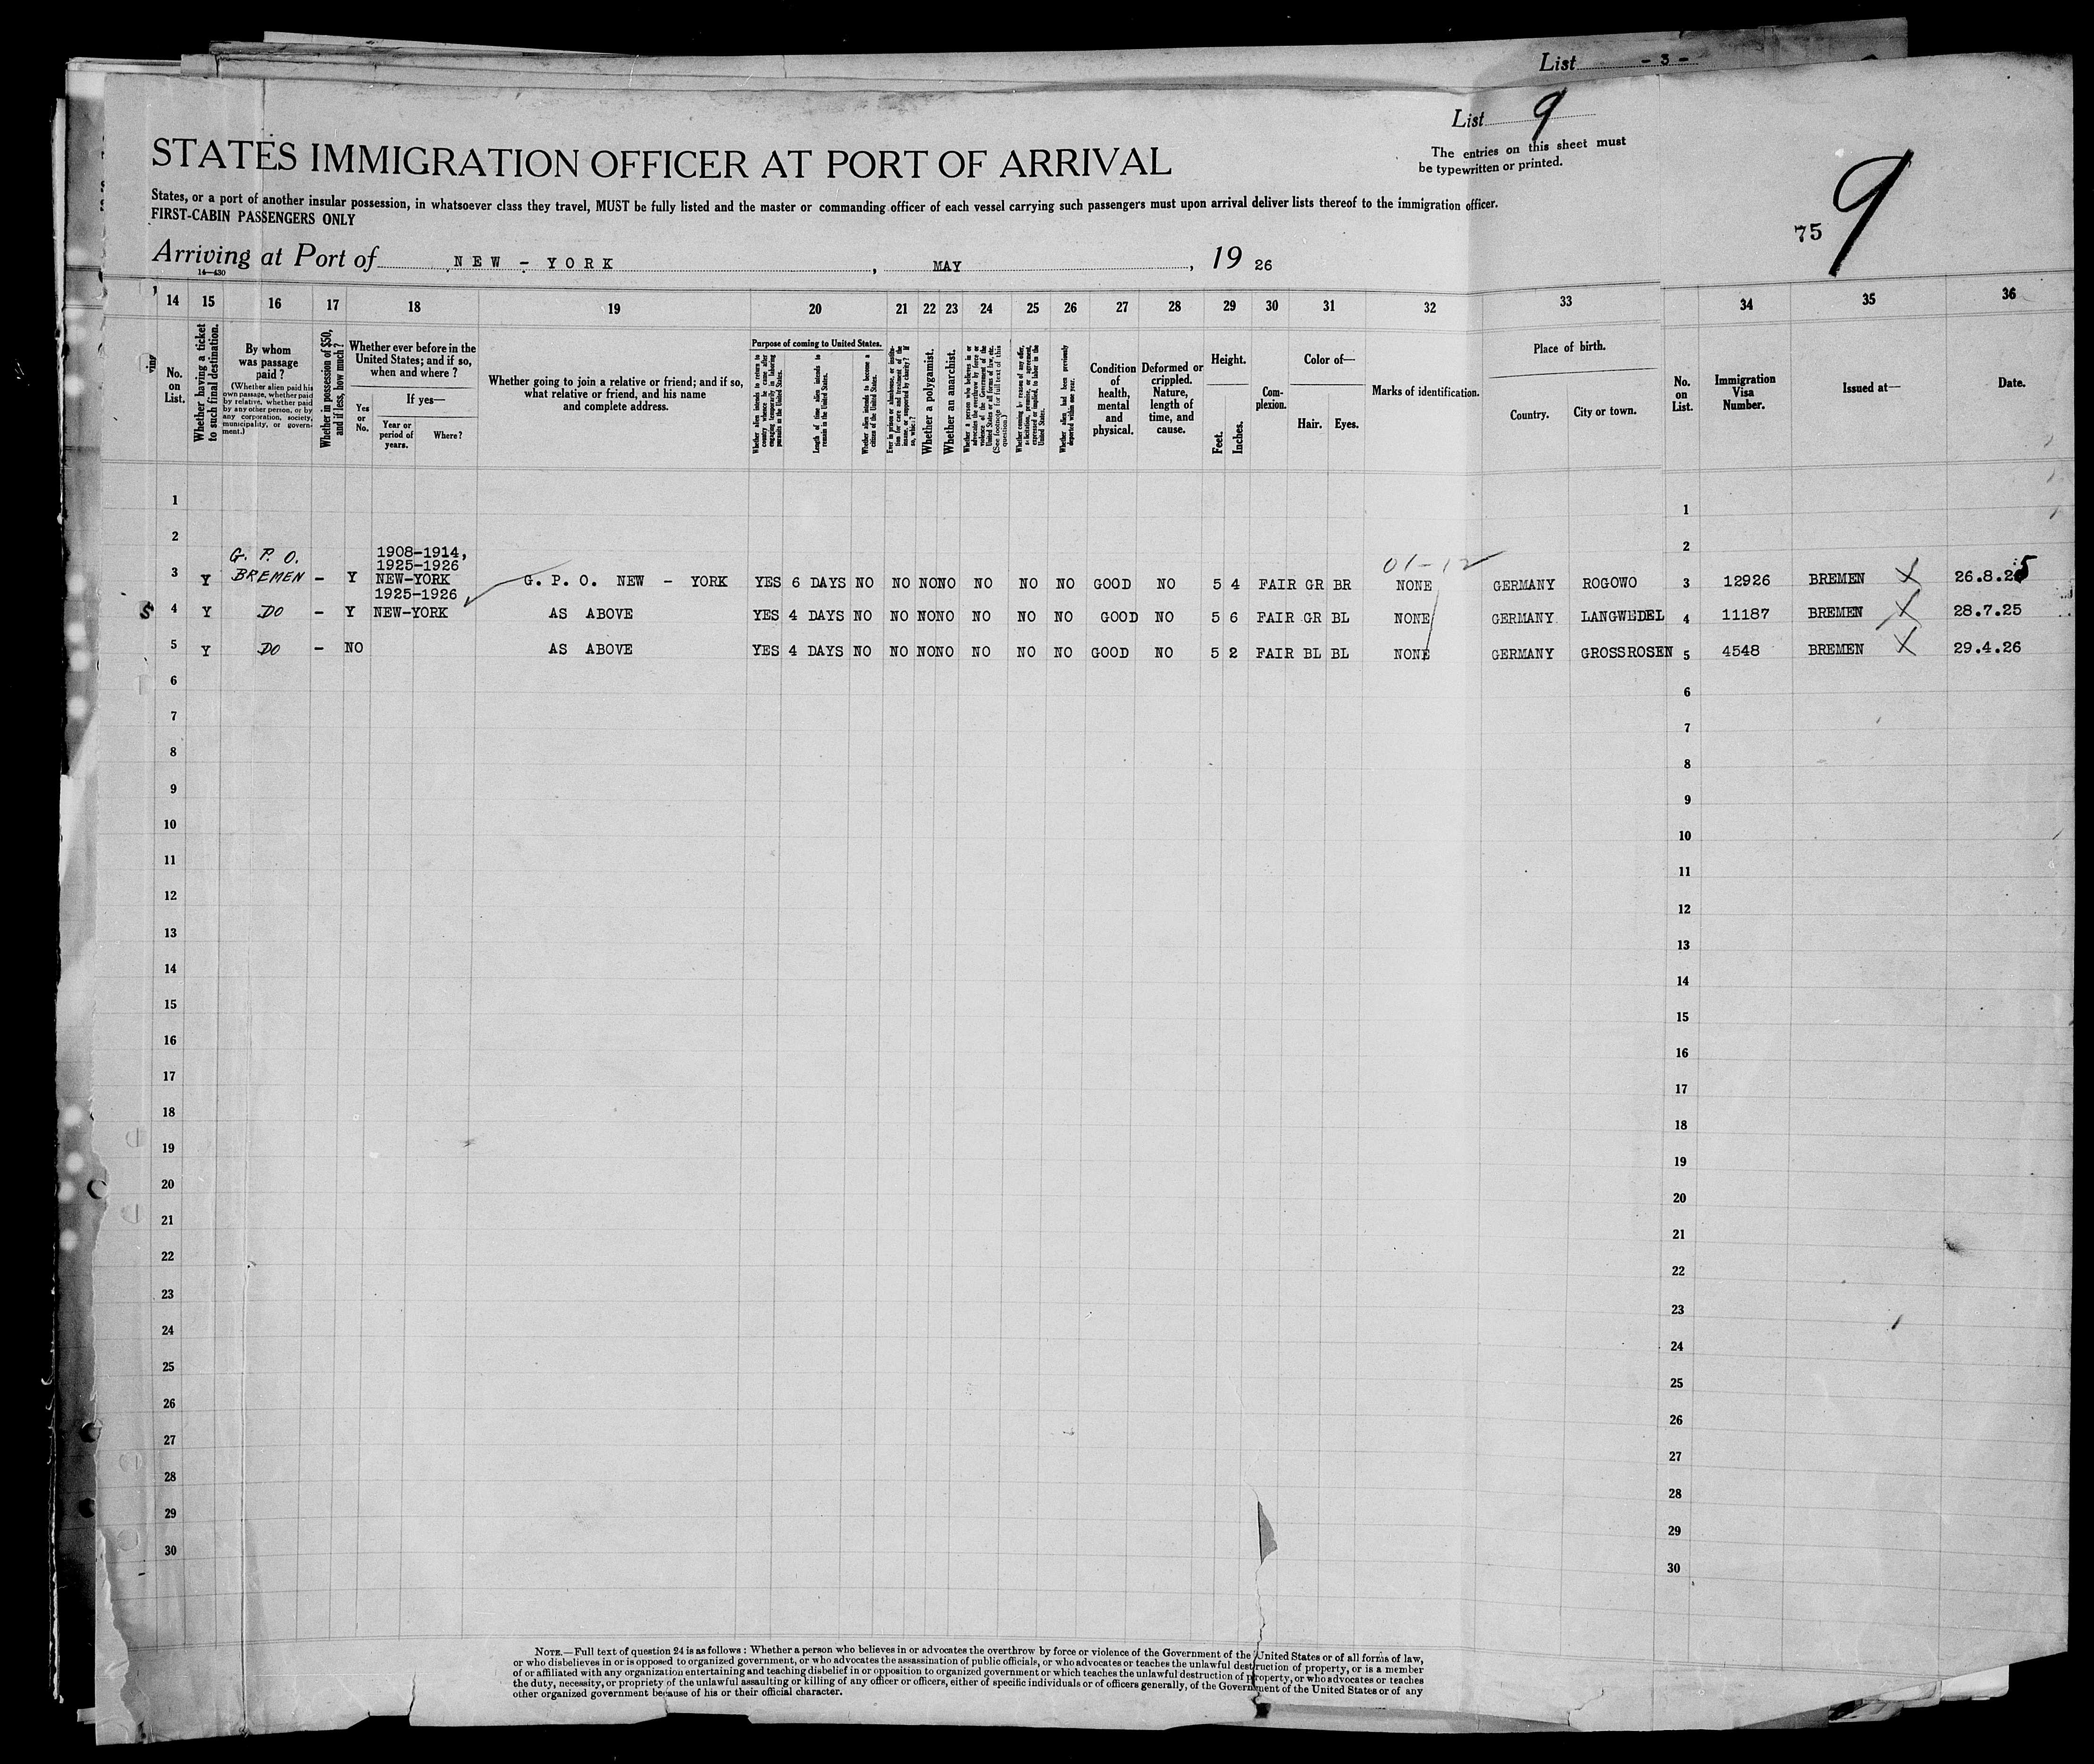 List - 3 -
List 9
The entries on this sheet must
be typewritten or printed.
STATES IMMIGRATION OFFICER AT PORT OF ARRIVAL
75 9
States, or a port of another insular possession, in whatsoever class they travel, MUST be fully listed and the master or commanding officer of each vessel carrying such passengers must upon arrival deliver lists thereof to the immigration officer.
FIRST-CABIN PASSENGERS ONLY
Arriving at Port of NEW - YORK, MAY, 19 26
14—430
14 15 16 17 18 19 20 21 22 23 24 25 26 27 28 29 30 31 32 33 34 35 36
No. on List.
Whether having a ticket to such final destination.
By whom was passage paid?
(Whether alien paid his own passage, whether paid by relative, whether paid by any other person, or by any corporation, society, municipality, or government.)
Whether in possession of $50, and if less, how much?
Whether ever before in the United States; and if so, when and where?
Yes or No.
If yes—
Year or period of years.
Where?
Whether going to join a relative or friend; and if so, what relative or friend, and his name and complete address.
Purpose of coming to United States.
Whether alien intends to return to country whence he came after engaging temporarily in laboring pursuits in the United States.
Length of time alien intends to remain in the United States.
Whether alien intends to become a citizen of the United States.
Ever in prison or almshouse, or institution for care and treatment of the insane, or supported by charity? If so, which?
Whether a polygamist.
Whether an anarchist.
Whether a person who believes in or advocates the overthrow by force or violence of the Government of the United States or all forms of law, etc. (See footnote for full text of this question.)
Whether coming by reason of any offer, solicitation, promise, or agreement, expressed or implied, to labor in the United States.
Whether alien had been previously deported within one year.
Condition of health, mental and physical.
Deformed or crippled. Nature, length of time, and cause.
Height.
Feet.
Inches.
Complexion.
Color of—
Hair.
Eyes.
Marks of identification.
Place of birth.
Country.
City or town.
No. on List.
Immigration Visa Number.
Issued at—
Date.
1 1
2 2
01-12
G. P. O. 1908-1914,
1925-1926
3 Y BREMEN - Y NEW-YORK G. P. O. NEW - YORK YES 6 DAYS NO NO NO NO NO NO NO GOOD NO 5 4 FAIR GR BR NONE GERMANY ROGOWO 3 12926 BREMEN X 26.8.25
1925-1926
5 4 Y DO - Y NEW-YORK AS ABOVE YES 4 DAYS NO NO NO NO NO NO NO GOOD NO 5 6 FAIR GR BL NONE GERMANY LANGWEDEL 4 11187 BREMEN X 28.7.25
5 Y DO - NO AS ABOVE YES 4 DAYS NO NO NO NO NO NO NO GOOD NO 5 2 FAIR BL BL NONE GERMANY GROSSROSEN 5 4548 BREMEN X 29.4.26
6 6
7 7
8 8
9 9
10 10
11 11
12 12
13 13
14 14
15 15
16 16
17 17
18 18
19 19
20 20
21 21
22 22
23 23
24 24
25 25
26 26
27 27
28 28
29 29
30 30
NOTE.—Full text of question 24 is as follows: Whether a person who believes in or advocates the overthrow by force or violence of the Government of the United States or of all forms of law,
or who disbelieves in or is opposed to organized government, or who advocates the assassination of public officials, or who advocates or teaches the unlawful destruction of property, or is a member
of or affiliated with any organization entertaining and teaching disbelief in or opposition to organized government or which teaches the unlawful destruction of property, or who advocates or teaches
the duty, necessity, or propriety of the unlawful assaulting or killing of any officer or officers, either of specific individuals or of officers generally, of the Government of the United States or of any
other organized government because of his or their official character.